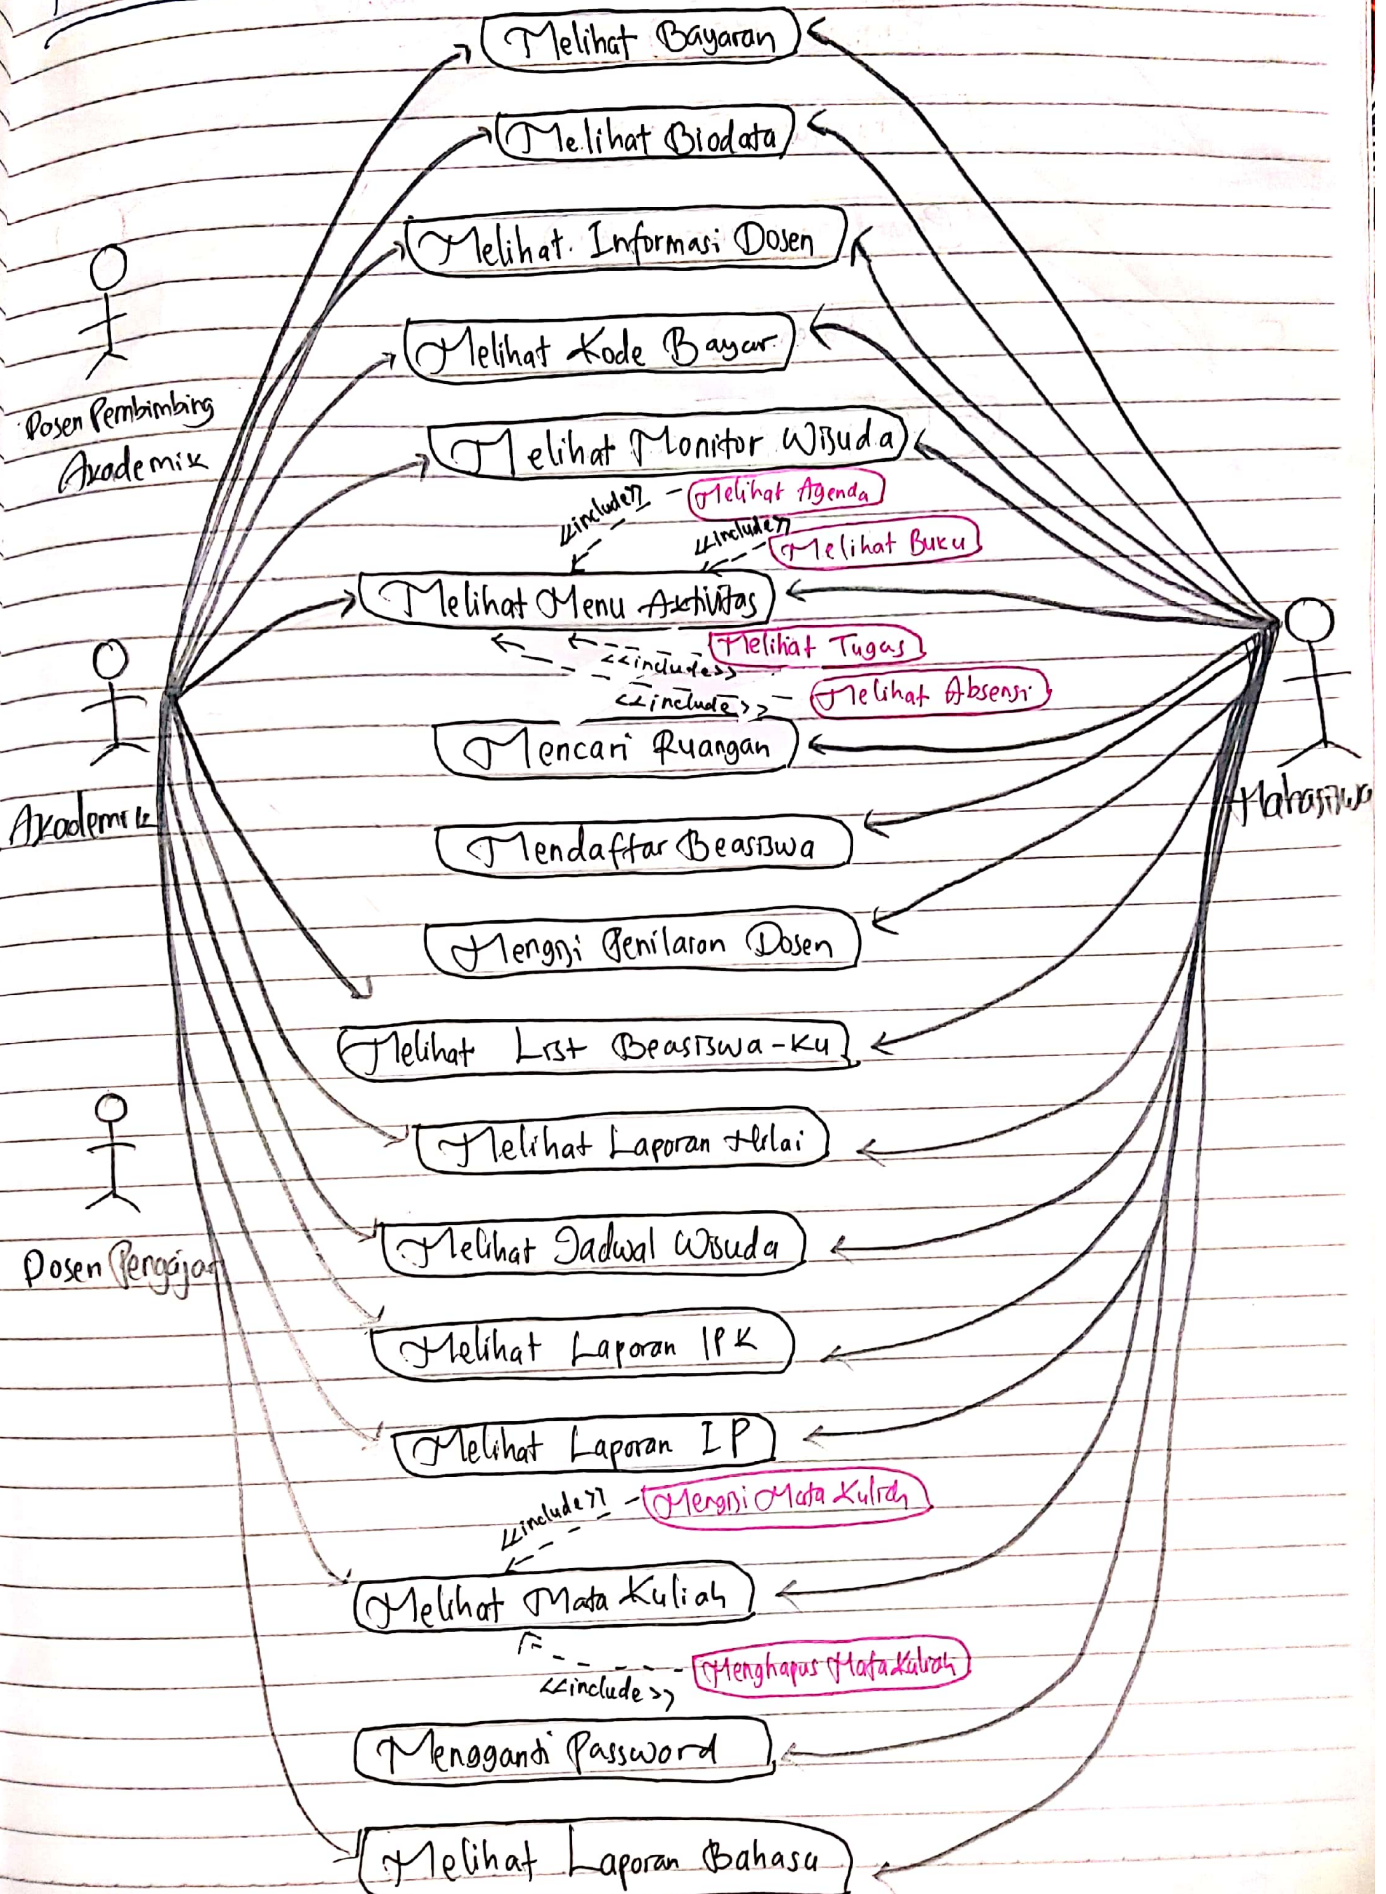 Melihat Bayaran
Melihat Biodata
Melihat Informasi Dosen
Melihat Kode Bayar
Dosen Pembimbing
Akademik
Melihat Monitor Wisuda
<<include>>
Melihat Agenda
<<include>>
Melihat Buku
Melihat Menu Aktivitas
Melihat Tugas
<<include>>
Melihat Absensi
<<include>>
Mencari Ruangan
Akademik
Mahasiswa
Mendaftar Beasiswa
Mengisi Penilaian Dosen
Melihat List Beasiswa-Ku
Melihat Laporan Nilai
Dosen Pengajar
Melihat Jadwal Wisuda
Melihat Laporan IPK
Melihat Laporan IP
<<include>>
Mengisi Mata Kuliah
Melihat Mata Kuliah
Menghapus Mata Kuliah
<<include>>
Mengganti Password
Melihat Laporan Bahasa